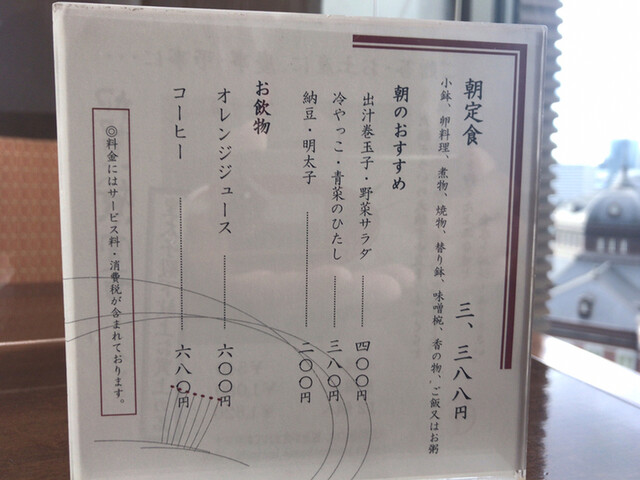 朝定食 三、三八八円
小鉢、卵料理、煮物、焼物、替り鉢、味噌椀、香の物、ご飯又はお粥
朝のおすすめ
出汁巻玉子・野菜サラダ 四〇〇円
冷やっこ・青菜のひたし 三八〇円
納豆・明太子 二〇〇円
お飲物
オレンジジュース 六〇〇円
コーヒー 六八〇円
◎料金にはサービス料・消費税が含まれております。